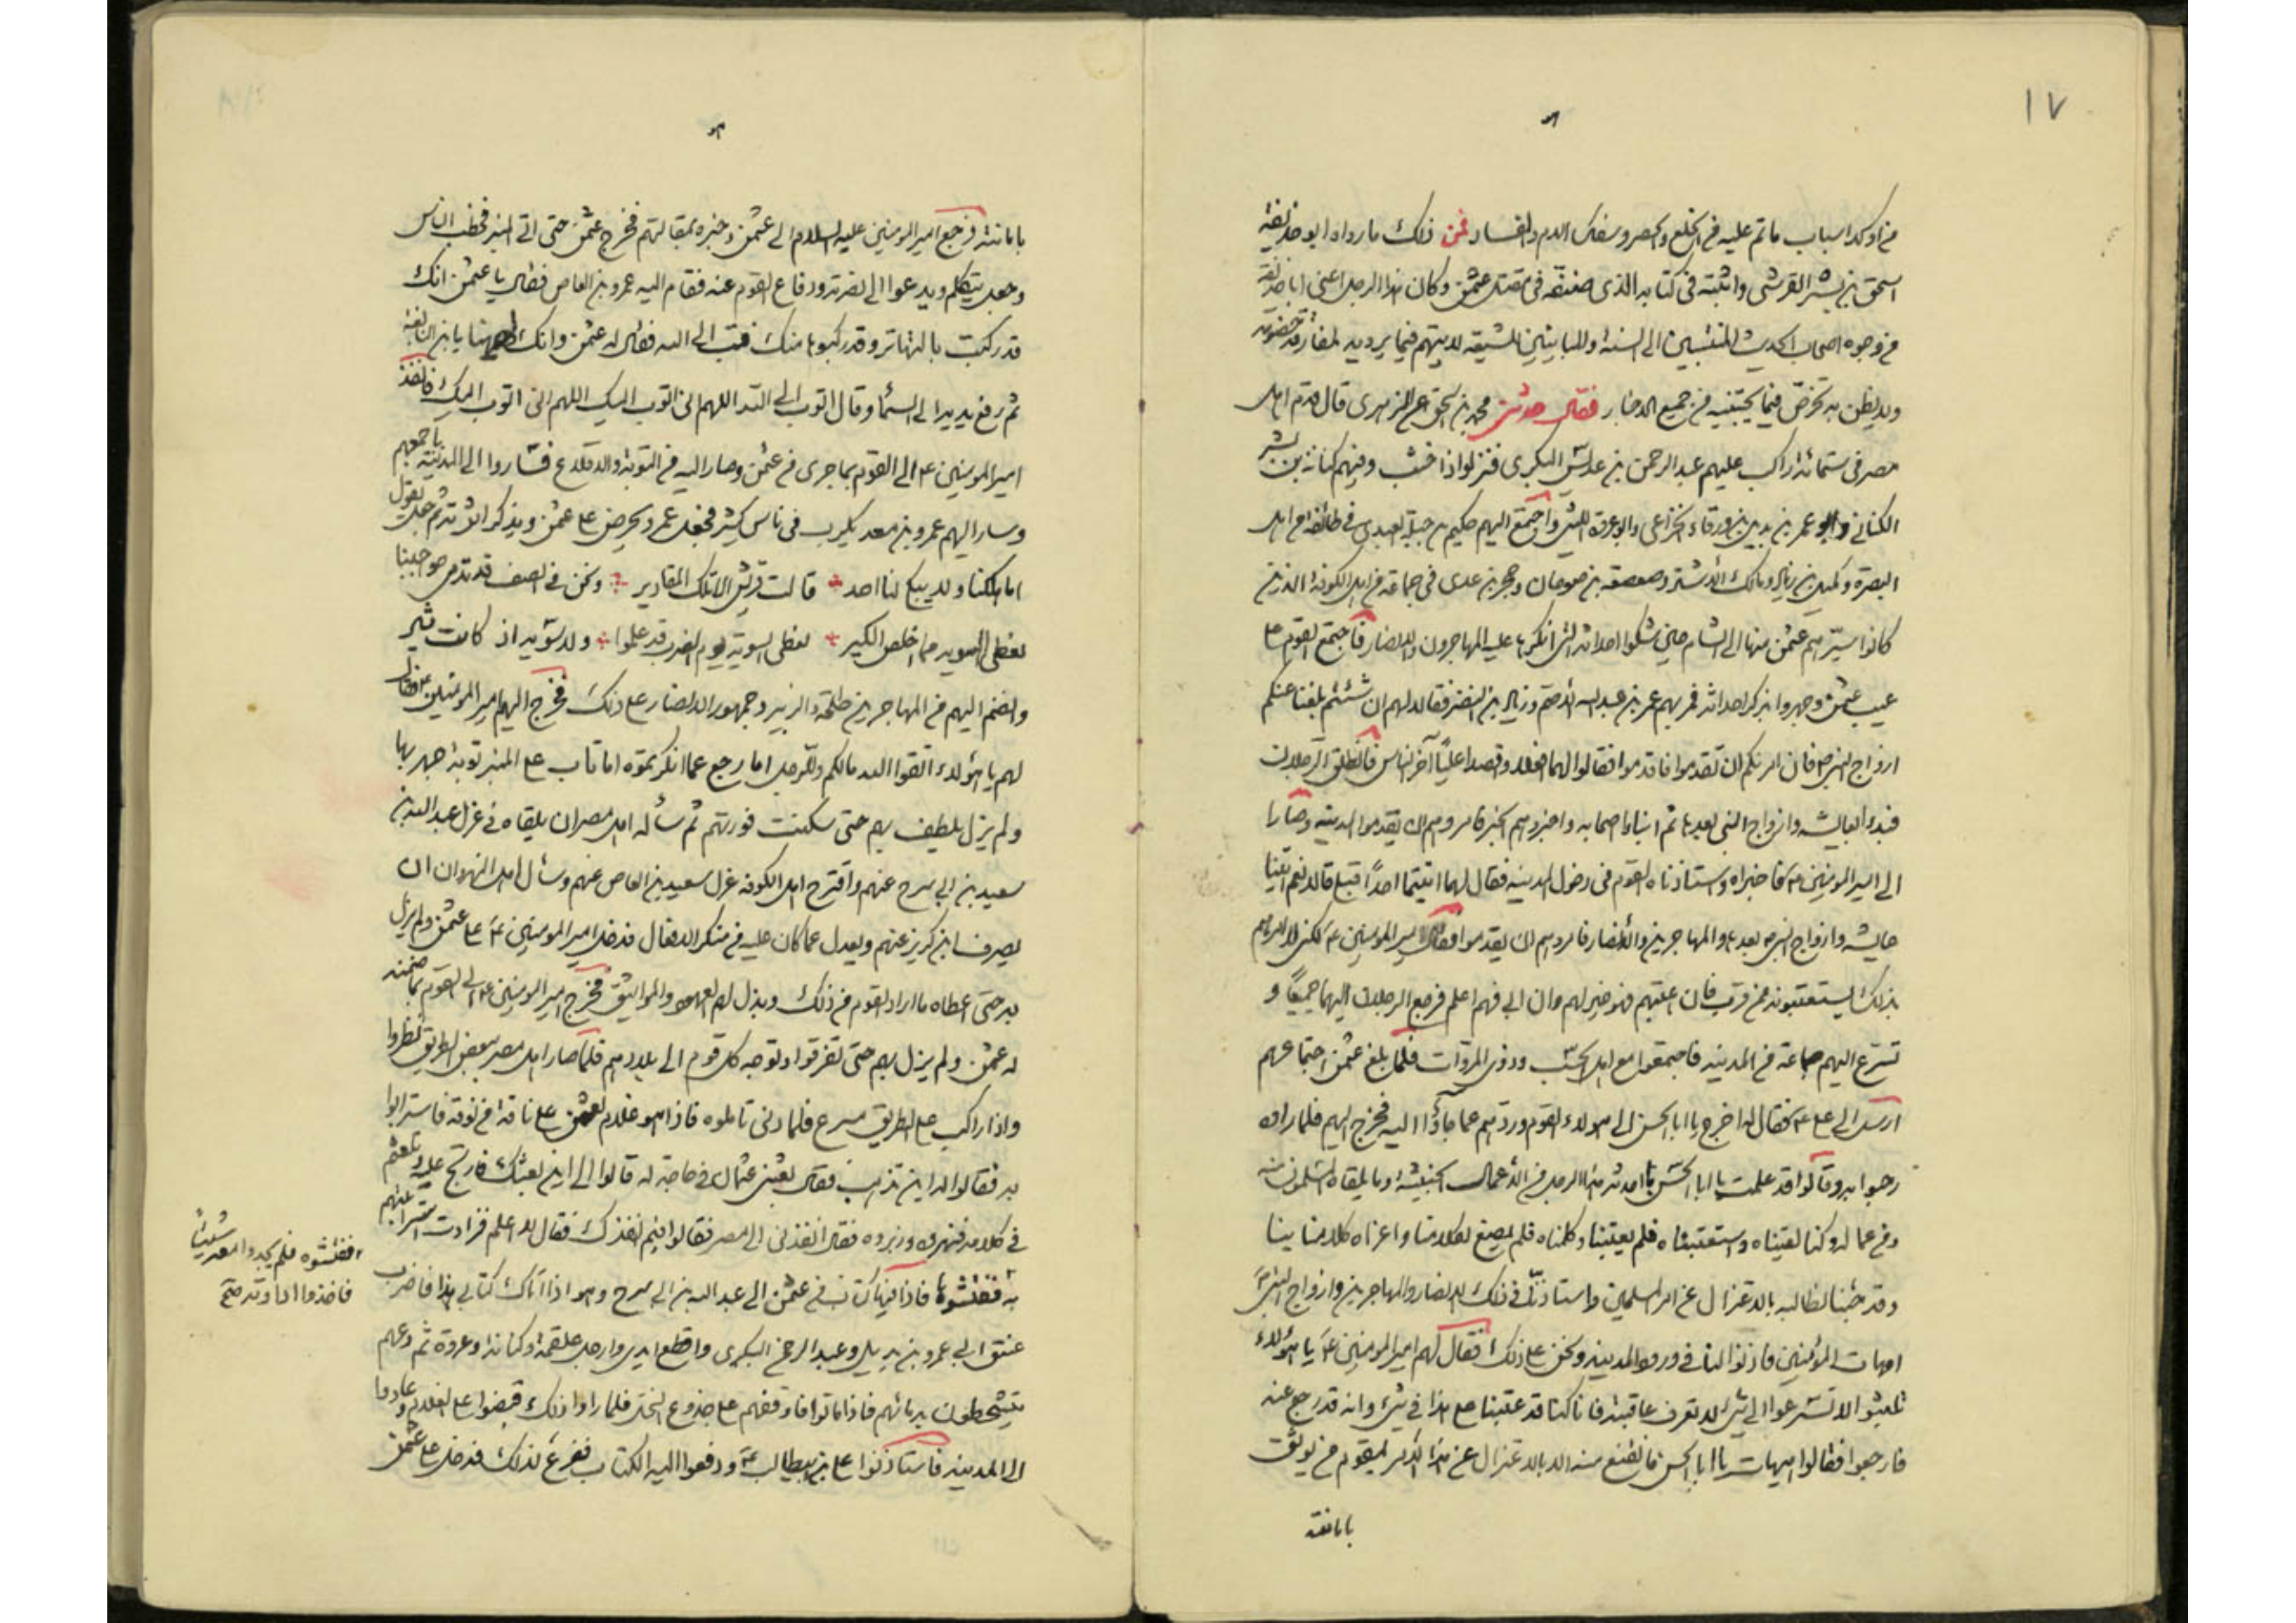 ١٧
من اوكد اسباب ما تم عليه من الخلع والحصر وسفك الدم والفساد فمن ذلك ما رواه ابو حذيفة
اسحق بن بشر القرشي واثبته في كتابه الذي صنفه في مقتل عثمن وكان هذا الرجل اعني ابا حذيفة
من وجوه اصحاب الحديث المنتسبين الى السنة والمباينين للشيعة لا يتهم فيما يرويه لمفارقة خصومه
ولا يظن به تخرص فيما يجتبيه من جميع الاخبار فقال حدثني محمد بن اسحق عن الزهري قال قدم اهل
مصر في ستمائة راكب عليهم عبد الرحمن بن عديس البكري فنزلوا ذا خشب وفيهم كنانة بن بشر
الكناني وابو عمر بن بديل بن ورقاء الخزاعي وابو عروة الليثي واجتمع اليهم حكيم بن جبلة العبدي في طائفة من اهل
البصرة وكميل بن زياد ومالك الاشتر وصعصعة بن صوحان وحجر بن عدي في جماعة من اهل الكوفة الذين
كانوا سيرهم عثمن منها الى الشام حين شكوا احداثه التي انكرها عليه المهاجرون والانصار فاجتمع القوم على
عيب عثمن وجهروا بذكر احداثه فمر بهم عمر بن عبد الله الاصم وزياد بن النضر فقالا لهم ان شئتم بلغنا عنكم
ازواج النبي ص فان امرنكم ان تقدموا فاقدموا فقالوا لهما افعلا واقصدا عليا آخر الناس فانطلق الرجلان
فبدءا بعايشة وازواج النبي بعدها ثم اتيا اصحابه واخبروهم الخبر فامروهم ان يقدموا المدينة وصارا
الى امير المؤمنين ع فاخبراه واستأذناه للقوم في دخول المدينة فقال لهما اتيتما احدا قبلي قالا نعم اتينا
عايشة وازواج النبي ص بعدها والمهاجرين والانصار فامروهم ان يقدموا فقال امير المؤمنين ع لكني لا آمرهم
بذلك يستعتبونه ممن قرب فان اعتبهم فهو خير لهم وان ابى فهم اعلم فرجع الرجلان اليهما جميعا و
تسرع اليهم جماعة من المدينة فاجتمعوا مع اهل الحسب وذوي المروات فلما بلغ عثمن اجتماعهم
ارسل الى علي ع فقال له اخرج يا ابا الحسن الى هولاء القوم وردهم عما جاؤا اليه فخرج اليهم فلما راوه
رحبوا به وقالوا قد علمت يا ابا الحسن ما احدثه هذا الرجل من الاعمال الخبيثة وما يلقاه المسلمون منه
ومن عماله وكنا لقيناه واستعتبناه فلم يعتبنا وكلمناه فلم يصغ لكلامنا واغراه كلامنا بنا
وقد جئنا نطالبه بالاعتزال عن امر المسلمين واستاذنا في ذلك الانصار والمهاجرين وازواج النبي ص
امهات المؤمنين فاذنوا لنا في ورود المدينة ونحن على ذلك فقال لهم امير المؤمنين ع يا هؤلاء
تلبثوا لا تسرعوا الى شيء لا تعرف عاقبته فانا كنا قد عتبنا على هذا في شيء وانه قد رجع عنه
فارجعوا فقالوا هيهات يا ابا الحسن ما نقنع منه الا بالاعتزال عن هذا الامر ليقوم من يوثق
بامانته
بامانته فرجع امير المؤمنين عليه السلام الى عثمن وخبره بمقالتهم فخرج عثمن حتى اتى المنبر فخطب الناس
وجعل يتكلم ويدعوا الى نصرته ودفاع القوم عنه فقام اليه عمرو بن العاص فقال يا عثمن انك
قد ركبت بالنهاتير وقد ركبوها منك فتب الى الله فقال له عثمن وانك لههنا يا بن النابغة
ثم رفع يديه الى السما وقال اتوب الى الله اللهم اني اتوب اليك اللهم اني اتوب اليك فانفذ
امير المؤمنين ع الى القوم بما جرى من عثمن وصار اليه من التوبة والاقلاع فساروا الى المدينة باجمعهم
وسار اليهم عمرو بن معد يكرب في ناس كثير فجعل عمرو يحرض على عثمن ويذكر اثرته ثم جعل يقول
اما هلكنا ولا يبكي لنا احد قالت قريش الا تلك المقادير ونحن في الصف قد تدمى حواجبنا
نعطى السوية مما اخلص الكير نعطى السوية يوم الضرب قد علموا ولا سوية اذ كانت دنانير
وانضم اليهم من المهاجرين طلحة والزبير وجمهور الانصار على ذلك فخرج اليهم امير المؤمنين ع فقال
لهم يا هؤلاء اتقوا الله مالكم وللرجل اما رجع عما انكرتموه اما تاب على المنبر توبة جهر بها
ولم يزل يلطف بهم حتى سكنت فورتهم ثم سأله اهل مصر ان يلقاه في عزل عبد الله بن
سعيد بن ابي سرح عنهم واقترح اهل الكوفة عزل سعيد بن العاص عنهم وسأل اهل النهروان ان
يصرف ابن كريز عنهم ويعدل عما كان عليه من منكر الافعال فدخل امير المؤمنين ع على عثمن ولم يزل
به حتى اعطاه ما اراد القوم من ذلك وبذل لهم العهود والمواثيق فخرج امير المؤمنين ع الى القوم بما ضمنه
له عثمن ولم يزل بهم حتى تفرقوا وتوجه كل قوم الى بلادهم فلما صار اهل مصر ببعض الطريق نظروا
واذا راكب على الطريق مسرع فلما دنى تاملوه فاذا هو غلام لعثمن على ناقة من نوقه فاسترابوا
به فقالوا له اين تذهب فقال بعثني عثمان في حاجة له قالوا الى اين بعثك فارتج عليه وتلعثم
في كلامه فنهروه وزبروه فقال انفذني الى مصر فقالوا فيم انفذك فقال لا اعلم فزادت استرابتهم
به ففتشوه فلم يجدوا معه شيئا
فاخذوا اداوته صح
ففتشوها فاذا فيها كتاب من عثمن الى عبد الله بن ابي سرح وهو اذا اتاك كتابي هذا فاضرب
عنق ابي عمرو بن بديل وعبد الرحمن البكري واقطع ايدي وارجل علقمة وكنانة وعروة ثم دعهم
يتشحطون بدمائهم فاذا ماتوا فاوقفهم على جذوع النخل فلما راوا ذلك قبضوا على الغلام وعادوا
الى المدينة فاستاذنوا على علي بن ابيطالب ع ودفعوا اليه الكتاب ففزع لذلك فدخل على عثمن